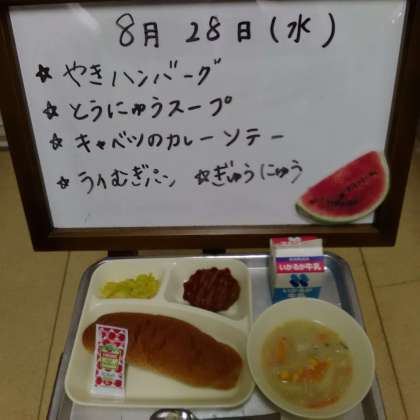 8月 28日(水)
☆ やきハンバーグ
☆ とうにゅうスープ
☆ キャベツのカレーソテー
☆ ライむぎパン ☆ぎゅうにゅう
いかるが牛乳